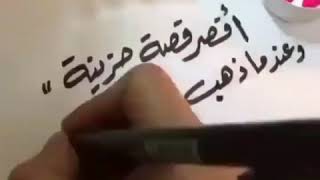 أقصر قصة حزينة "
وعندما ذهب